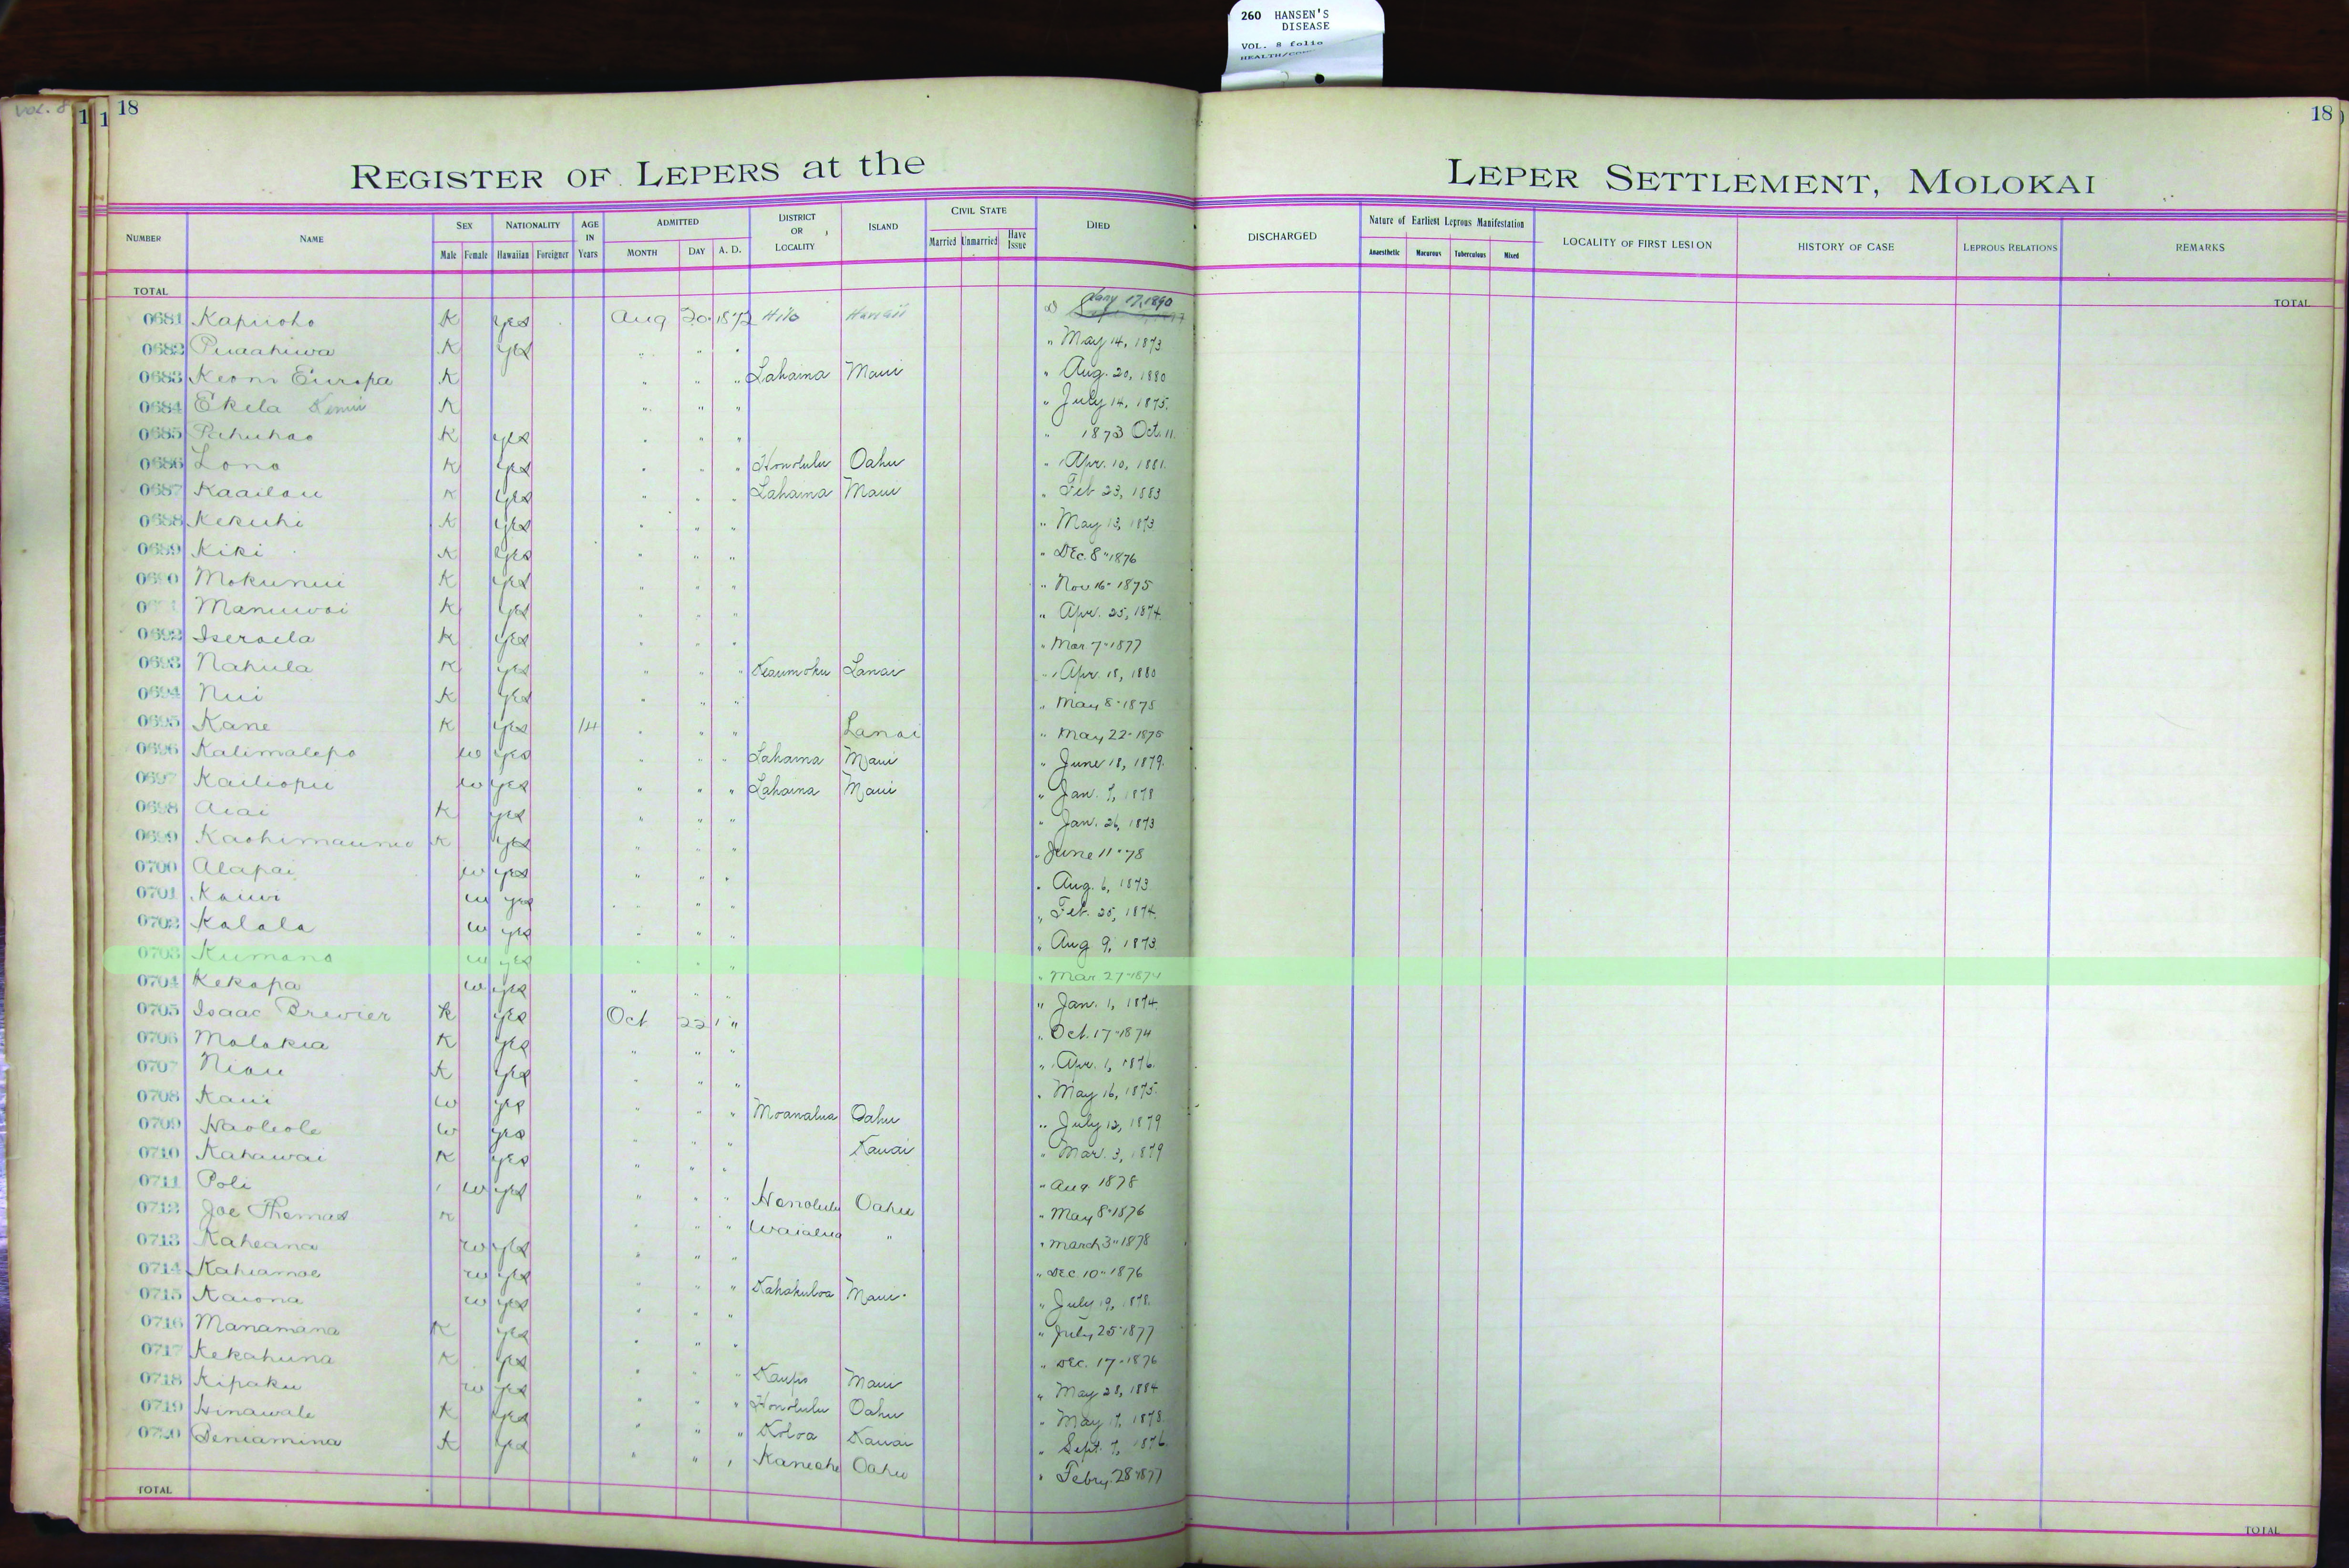 260 HANSEN'S
DISEASE
VOL. 8 folio
Vol. 8
1 1 18
18
REGISTER OF LEPERS at the LEPER SETTLEMENT, MOLOKAI
NUMBER NAME SEX Male Female NATIONALITY Hawaiian Foreigner AGE IN Years ADMITTED MONTH DAY A. D. DISTRICT OR LOCALITY ISLAND CIVIL STATE Married Unmarried Have Issue DIED DISCHARGED Nature of Earliest Leprous Manifestation Anaesthetic Macurous Tuberculous Mixed LOCALITY OF FIRST LESION HISTORY OF CASE LEPROUS RELATIONS REMARKS
TOTAL TOTAL
0681 Kapiioho K yes Aug 20 1872 Hilo Hawaii Jany 17, 1890
0682 Puaahiwa K yes " " " " May 14, 1873
0683 Keoni Europa K " " " Lahaina Maui " Aug. 20, 1880
0684 Ekela K " " " " July 14, 1875.
0685 Pahuhao K yes " " " " 1873 Oct. 11.
0686 Lono K yes " " " Honolulu Oahu " Apr. 10, 1881.
0687 Kaailau K yes " " " Lahaina Maui " Feb 23, 1883
0688 Kekuhi K yes " " " " May 13, 1873
0689 Kiki K yes " " " " Dec. 8" 1876
0690 Mokunui K yes " " " " Nov 16" 1875
Manuwai K yes " " " " Apr. 25, 1874.
0692 Iseraela K yes " " " " Mar 7" 1877
0693 Nahula K yes " " " Keaumoku Lanai " Apr. 18, 1880
0694 Nui K yes " " " " May 8" 1875
0695 Kane K yes 14 " " " Lanai " May 22" 1875
0696 Kalimalepo w yes " " " Lahaina Maui " June 18, 1879.
0697 Kailiopu w yes " " " Lahaina Maui " Jan. 7, 1878
0698 Aiai K yes " " " " Jan. 26, 1873
0699 K yes " " " " June 11" 78
0700 Alapai w yes " " " " Aug. 6, 1873
0701 Kauwi w yes " " " " Feb. 25, 1874.
0702 Kalala w yes " " " " Aug 9, 1873
0703 Kumano w yes " " " " Mar 27" 1874
0704 Kekapa w yes " " " " Jan. 1, 1874.
0705 Isaac Brewer K yes Oct 22 " " Oct. 17" 1874
0706 Molokia K yes " " " " Apr. 1, 1876.
0707 Niau K yes " " " " May 16, 1875.
0708 Kaui w yes " " " Moanalua Oahu " July 12, 1879
0709 Haoleole w yes " " " Kauai " Mar. 3, 1879
0710 Kahawai K yes " " " " Aug 1878
0711 Poli w yes " " " Honolulu Oahu " May 8" 1876
0712 Joe Thomas K " " " Waialua " " March 3" 1878
0713 Kaheana w yes " " " " Dec 10" 1876
0714 Kahiamoe w yes " " " Kahakuloa Maui " July 19, 1878.
0715 Kaiona w yes " " " " July 25" 1877
0716 Manamana K yes " " " " Dec. 17" 1876
0717 Kekahuna K yes " " " Kaupo Maui " May 28, 1884
0718 Kipaku w yes " " " Honolulu Oahu " May 17, 1878.
0719 Hinawale K yes " " " Koloa Kauai " Sept. 7, 1876.
0720 Beniamina K yes " " " Kaneohe Oahu " Febry. 28" 1877
TOTAL TOTAL